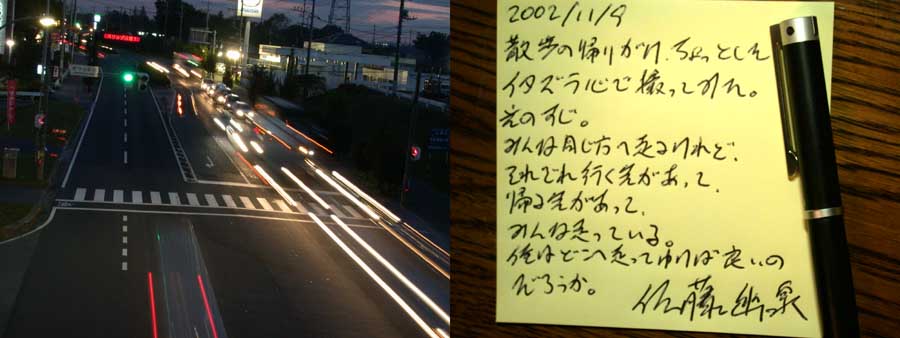 2002/11/9
散歩の帰りがけ、ちょっとした
イタズラ心で撮ってみた。
光のすじ。
みんな同じ方へ走るけれど、
それぞれ行く先があって、
帰る先があって、
みんな走っている。
俺はどこへ走ってゆけば良いの
だろうか。
佐藤